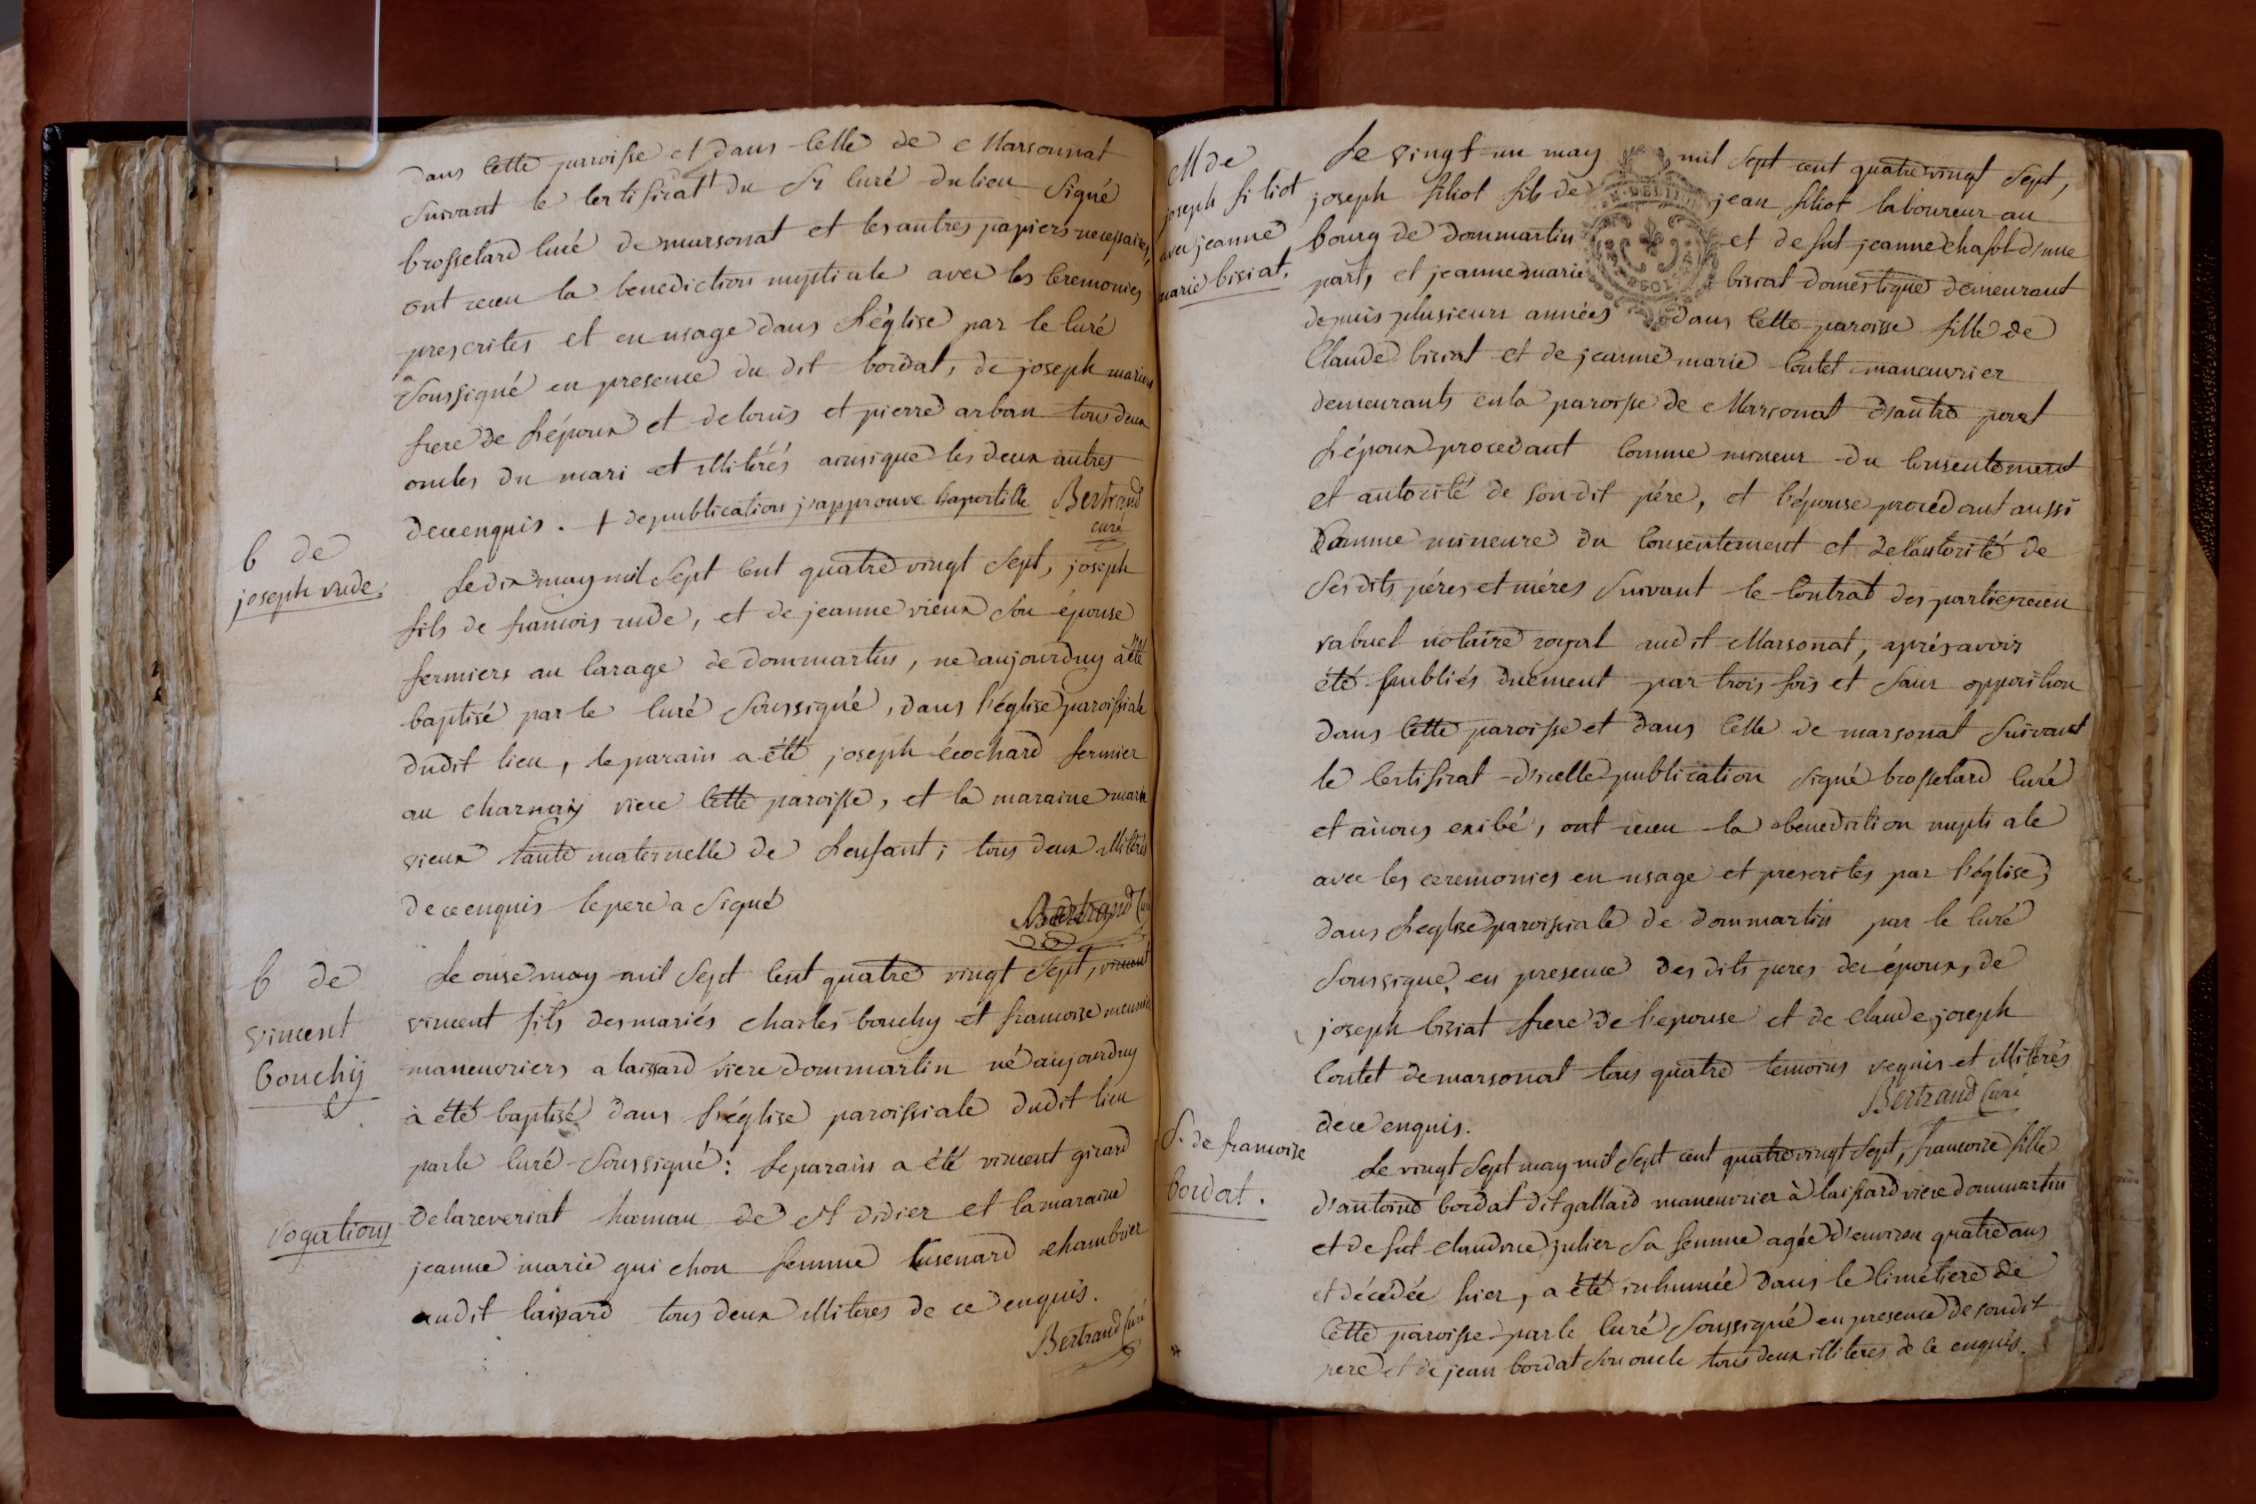 dans cette parroisse et dans celle de Marsonnat
suivant le certificat † du Sr curé du lieu signé
brosselard curé de marsonat et les autres papiers necessaires,
ont recu la benediction nuptiale avec les ceremonies
prescrites et en usage dans L'église par le curé
soussigné en presence du dit bordat, de joseph
frere de L'époux et de louis et pierre arban tous deux
oncles du mari et illitérés ainsique les deux autres
dececenquis. † de publication j'approuve l'apostille Bertrand
curé
b de
joseph rude.
Le dix may mil sept cent quatre vingt sept, joseph
fils de francois rude, et de jeanne vieux son épouse
fermiers au larage de dommartin, ne aujourduy a été
baptisé par le curé soussigné, dans l'église paroissiale
dudit lieu, le parain a été joseph écochard fermier
au charnay riere cette paroisse, et la maraine marie
vieux tante maternelle de L'enfant; tous deux illitérés
de ce enquis le pere a signé
Bertrand Curé
b de
vincent
bouchy
Le onse may mil sept cent quatre vingt sept, vincent
vincent fils des mariés charles bouchy et francoise
maneuvriers a laissard riere dommartin né aujourduy
à été baptisé dans L'église paroissiale dudit lieu
par le curé soussigné: Le parain a été vincent girard
rogations
de lareveriat hameau de St didier et la maraine
jeanne marie guichon femme chambrier
audit laissard tous deux illiteres de ce enquis.
Bertrand Curé
M de
joseph filiot
avec jeanne
marie bisiat.
Le vingt un may mil sept cent quatrevingt sept,
joseph filiot fils de jean filiot laboureur au
bourg de dommartin et de fut jeanne d'une
part, et jeanne marie bisiat domestique demeurant
depuis plusieurs années dans cette paroisse fille de
Claude bisiat et de jeanne marie coutet maneuvrier
demeurants en la paroisse de Marsonat d'autre part
L'époux procedant comme mineur du consentement
et autorité de son dit pére, et l'épouse procédant aussi
Comme mineure du consentement et de l'autorité de
ses dits péres et méres suivant le contrat des parties recu
rabuel notaire royal audit Marsonat, aprés avoir
été publiés duement par trois fois et sans opposition
dans cette paroisse et dans celle de marsonat suivant
le certificat d'icelle publication signé brosselard curé
et a nous exibé, ont recu la benediction nuptiale
avec les ceremonies en usage et prescrites par l'église,
dans L'eglise paroissiale de dommartin par le curé
soussigné, en presence des dits peres des époux, de
joseph bisiat frere de l'epouse et de claude joseph
Coutet de marsonat tous quatre temoins requis et illitérés
Bertrand Curé
de ce enquis.
S. de francoise
bordat.
Le vingt sept may mil sept cent quatrevingt sept, francoise fille
d'antoine bordat dit gallard maneuvrier à laissard riere dommartin
et de fut claudine julier sa femme agée d'environ quatre ans
et décedée hier, a été inhumée dans le cimétiere de
cette paroisse par le curé soussigné en presence de son dit
pere et de jean bordat son oncle tous deux illiteres de ce enquis.